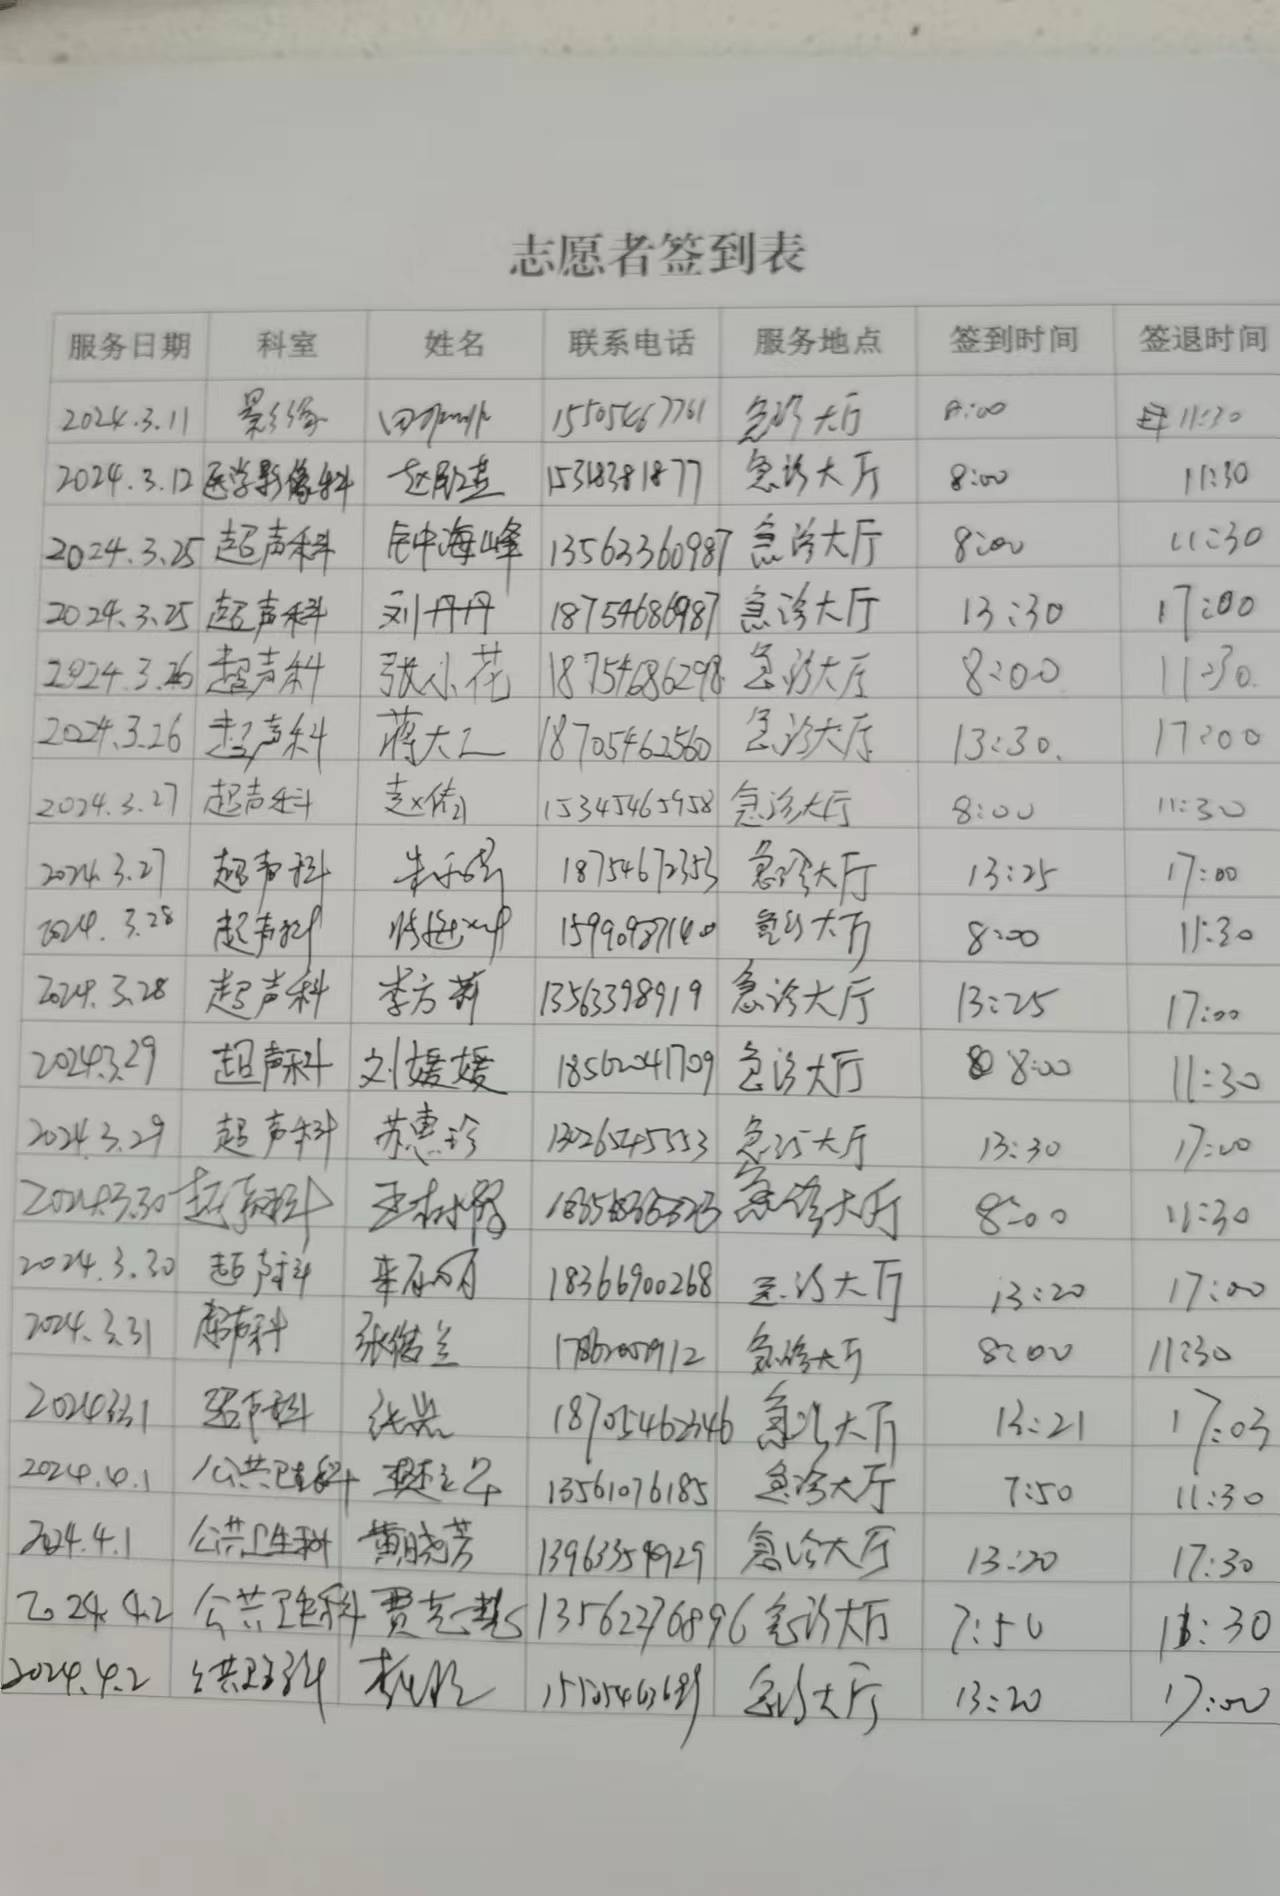 志愿者签到表
服务日期 科室 姓名 联系电话 服务地点 签到时间 签退时间
2024.3.11 影像 15505467761 急诊大厅 8:00 11:30
2024.3.12 医学影像科 15318381877 急诊大厅 8:00 11:30
2024.3.25 超声科 海峰 13563360987 急诊大厅 8:00 11:30
2024.3.25 超声科 刘丹丹 18754686987 急诊大厅 13:30 17:00
2024.3.26 超声科 张小花 18754686298 急诊大厅 8:00 11:30
2024.3.26 超声科 蒋大 18705462560 急诊大厅 13:30 17:00
2024.3.27 超声科 15345465958 急诊大厅 8:00 11:30
2024.3.27 超声科 18754672353 急诊大厅 13:25 17:00
2024.3.28 超声科 急诊大厅 8:00 11:30
2024.3.28 超声科 李方莉 13563398919 急诊大厅 13:25 17:00
2024.3.29 超声科 刘媛媛 18562041709 急诊大厅 8:00 11:30
2024.3.29 超声科 苏惠珍 13026545553 急诊大厅 13:30 17:00
2024.3.30 超声科 急诊大厅 8:00 11:30
2024.3.30 超声科 18366900268 急诊大厅 13:20 17:00
2024.3.31 超声科 急诊大厅 8:00 11:30
2024.3.31 超声科 18705462346 急诊大厅 13:21 17:03
2024.4.1 公共卫生科 13561076185 急诊大厅 7:50 11:30
2024.4.1 公共卫生科 黄晓芳 急诊大厅 13:20 17:30
2024.4.2 公共卫生科 13562276896 急诊大厅 7:50 11:30
2024.4.2 公共卫生科 急诊大厅 13:20 17:00